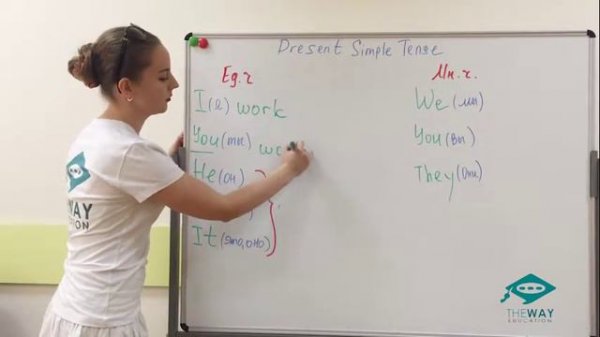 Present Simple Tense
Ед.ч
I (я) work
You (ты) wo
He (он)
It (это, оно)
Мн.ч.
We (мы)
You (вы)
They (они)
THEWAY
EDUCATION
THEWAY
EDUCATION